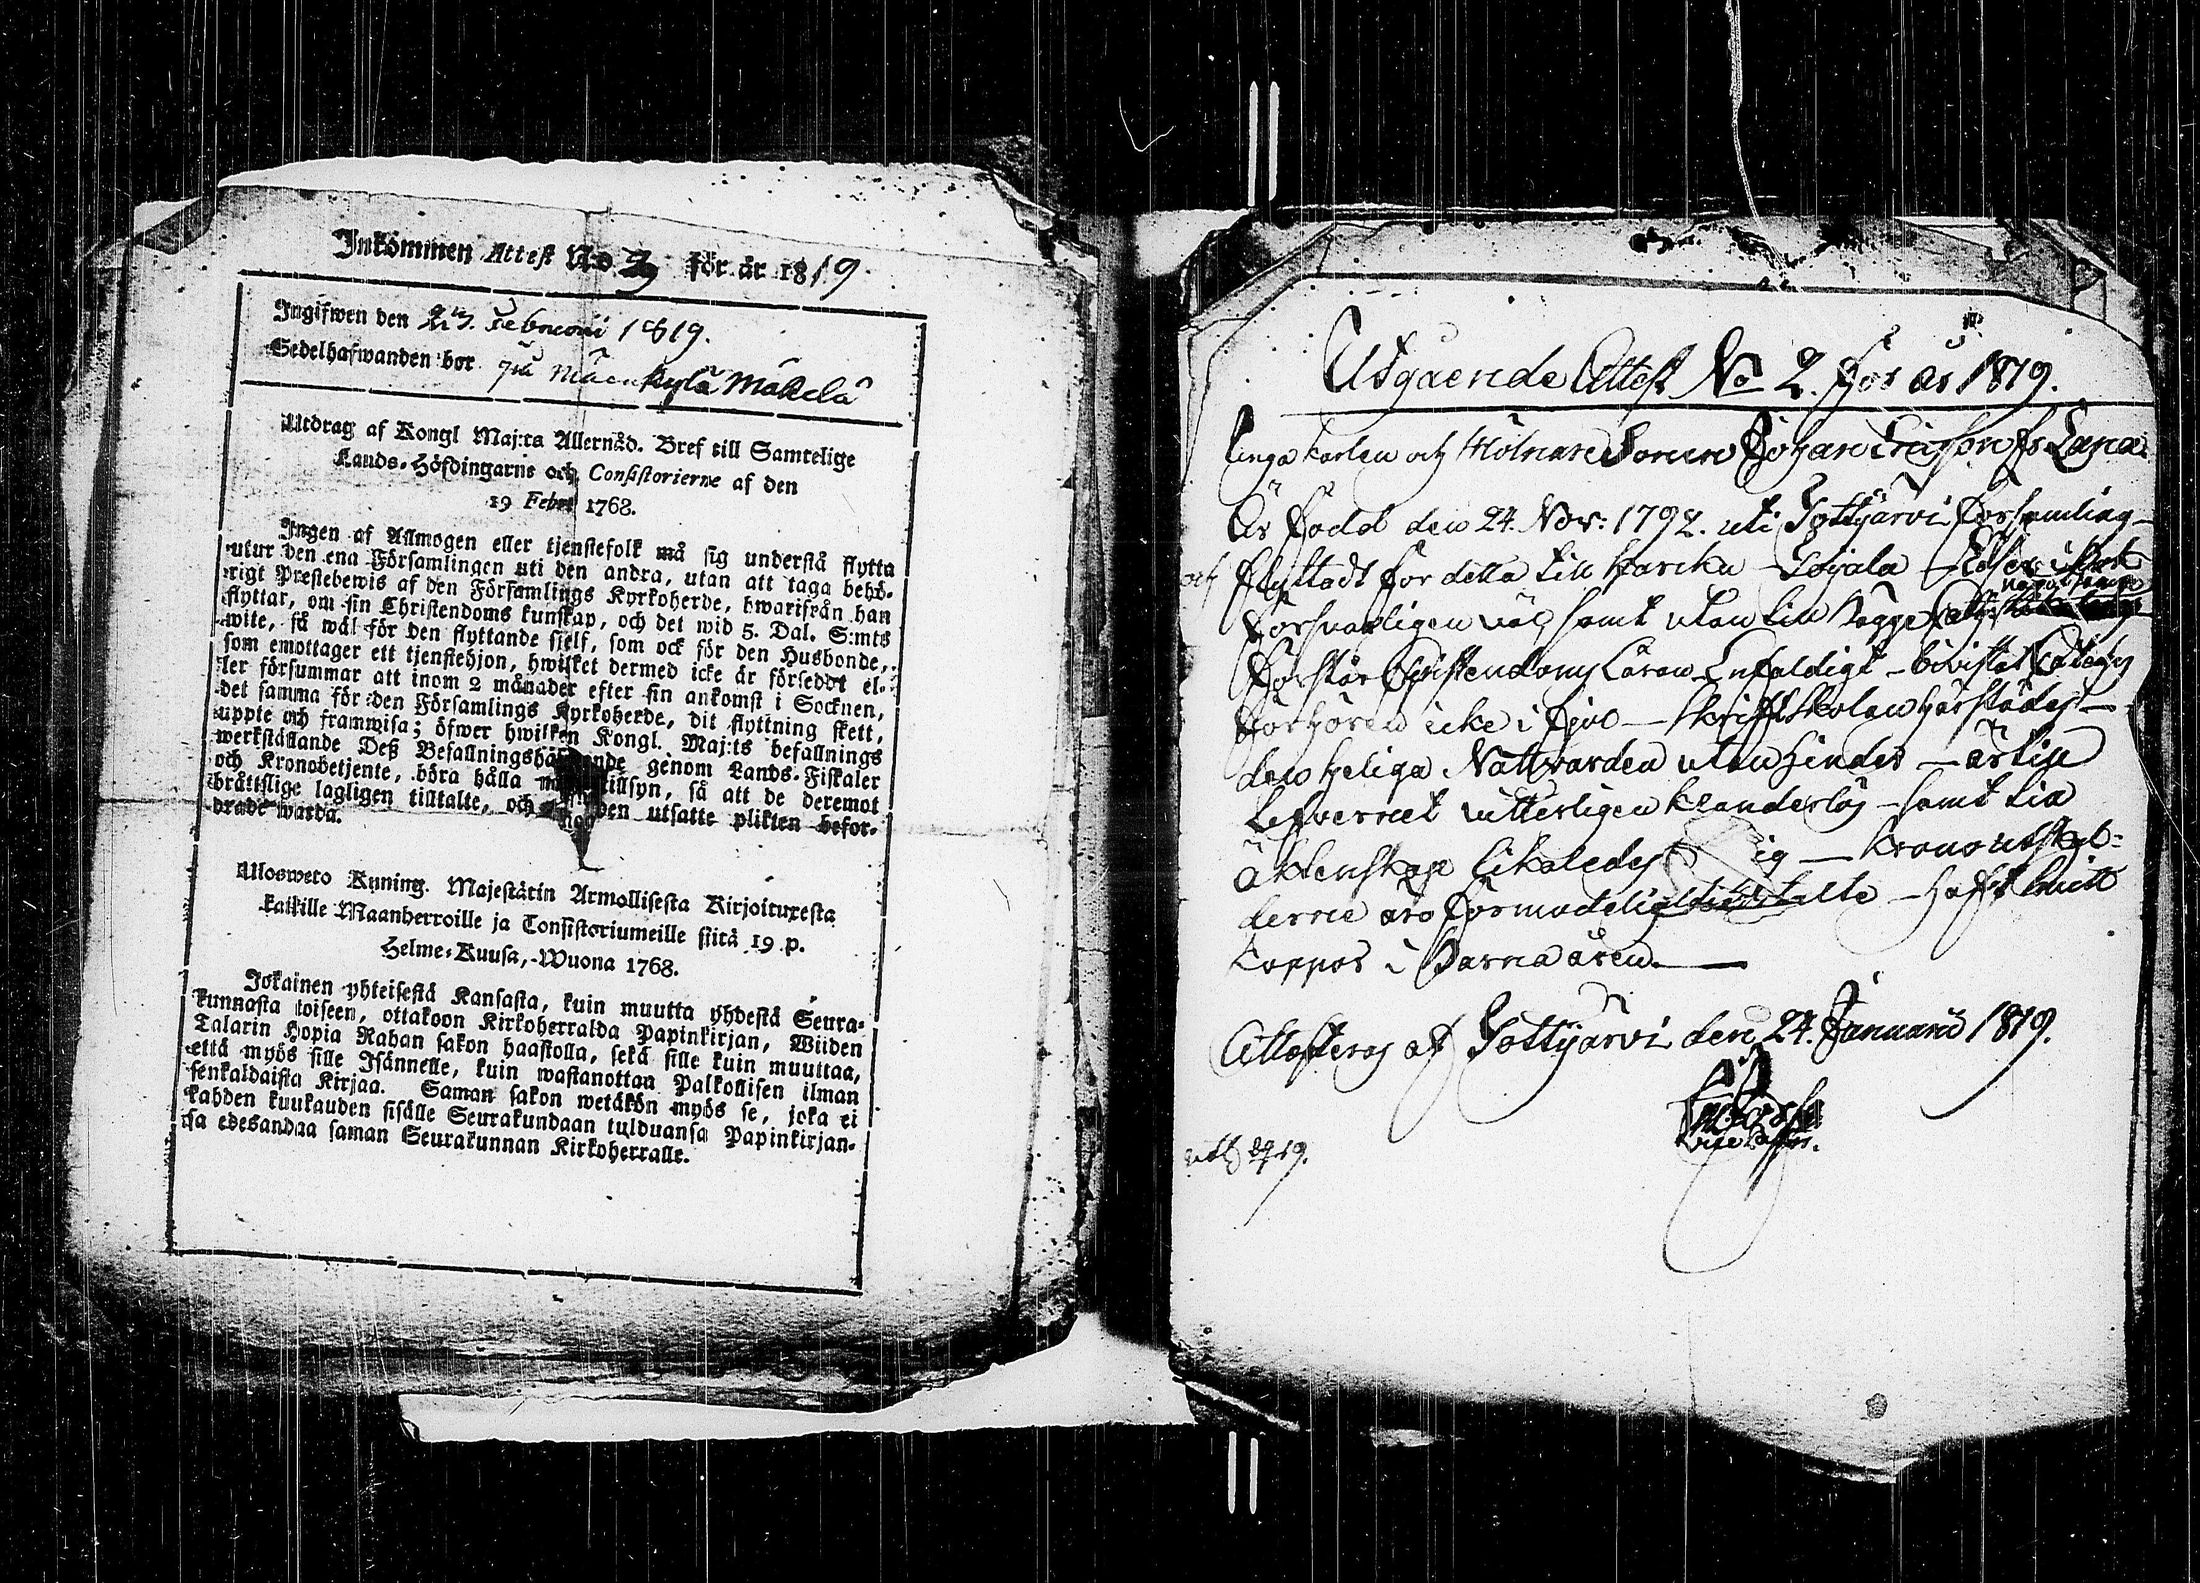 Inkommen Attest No 3 för år 1819.
Ingifwen den 23. Februarii 1819.
Sedelhafwanden bor på Mäenkylä Mäkelä
Utdrag af Kongl Maj:ts Allernåd. Bref till Samtelige
Lands-Höfdingarne och Consistorierne af den
19 Febr 1768.
Ingen af Allmogen eller tjenstefolk må sig understå flytta
utur den ena Församlingen uti den andra, utan att taga behö-
rigt Prestebewis af den Församlings Kyrkoherde, hwarifrån han
flyttar, om sin Christendoms kunskap, och det wid 5. Dal. S:mts
wite, så wäl för den flyttande sjelf, som ock för den Husbonde,
som emottager ett tjenstehjon, hwilket dermed icke är förseddt el-
ler försummar att inom 2 månader efter sin ankomst i Socknen,
det samma för den Församlings Kyrkoherde, dit flyttning skett,
uppte och framwisa; öfwer hwilken Kongl. Maj:ts befallnings
werkställande Deß Befallningshafwande genom Lands-Fiskaler
och Kronobetjente, böra hålla tillsyn, så att de deremot
bråttslige lagligen tilltalte, och den utsatte plikten befor-
drade warda.
Ulosweto Kuning. Majestätin Armollisesta Kirjoituxesta
kaikille Maanherroille ja Consistoriumeille siitä 19 p.
Helme-Kuusa, Wuona 1768.
Jokainen yhteisestä Kansasta, kuin muutta yhdestä Seura-
kunnasta toiseen, ottakoon Kirkoherralda Papinkirjan, Wiiden
Talarin Hopia Rahan sakon haastolla, sekä sille kuin muuttaa,
että myös sille Isännelle, kuin wastanottaa Palkollisen ilman
senkaldaista Kirjaa. Saman sakon wetäkön myös se, joka ei
kahden kuukauden sisälle Seurakundaan tulduansa Papinkirjan-
sa edesandaa saman Seurakunnan Kirkoherralle.
Utgaende Attest No 2. för år 1819.
Unga karlen och Mölnare Sonen Johan Ericsson fr.
Är född den 24. Nov: 1792. uti Pottjärvi församling
och flyttadt för detta till Karcku
försvarligen väl samt utan till
förstår Christendoms Läran Enfaldigt bivistat
förhören icke i fjol Skriftskolan härstädes
den heliga Nattvarden utan hinder är till
Lefvernet vitterligen klanderlös samt till
äktenskap likaledes ig Krono utskyl-
derne äro förmodelig haft
Koppor i Barna åren.
Attesteras af Pottjärvi den 24. Januarii 1819.